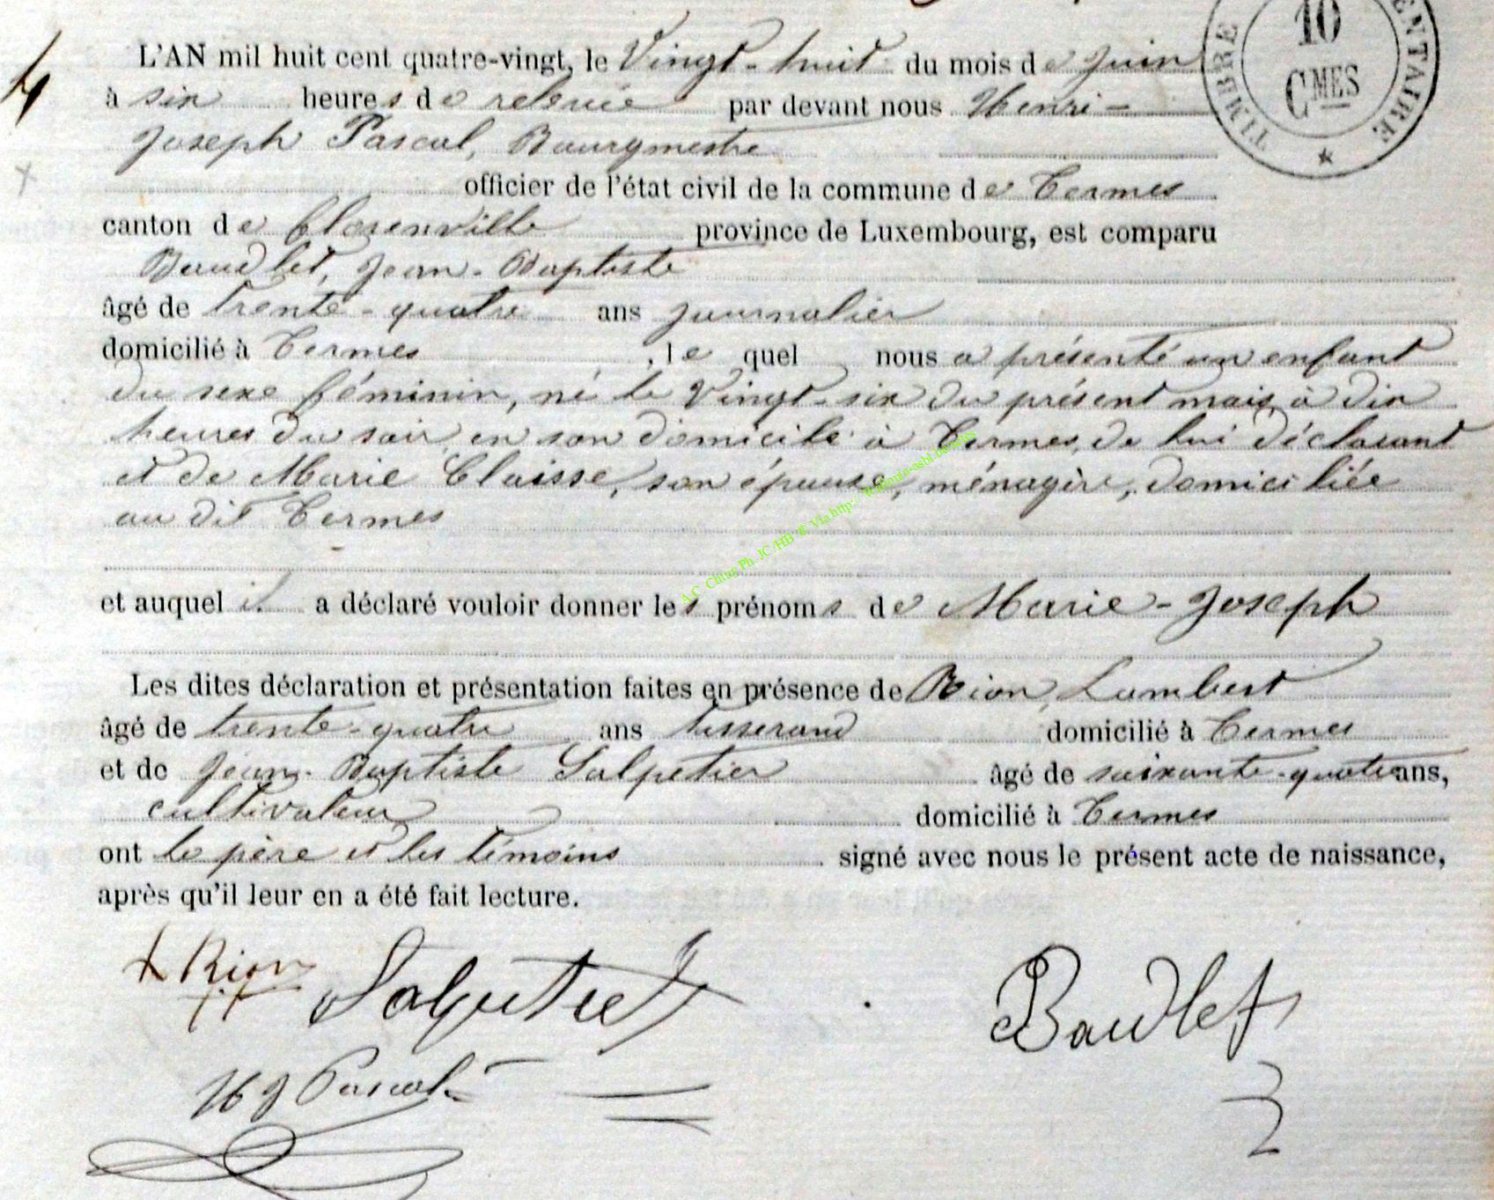 TIMBRE
10
CMES
L'AN mil huit cent quatre-vingt, le Vingt-huit du mois de Juin
à six heures de relevée par devant nous Henri-
Joseph Pascal, Bourgmestre
officier de l'état civil de la commune de Termes
canton de Florenville province de Luxembourg, est comparu
Baudlet, Jean-Baptiste
âgé de trente-quatre ans journalier
domicilié à Termes, le quel nous a présenté un enfant
du sexe féminin, né le Vingt-six du présent mois, à dix
heures du soir, en son domicile à Termes, de lui déclarant
et de Marie Claisse, son épouse, ménagère, domiciliée
au dit Termes
et auquel il a déclaré vouloir donner les prénoms de Marie-Joseph
Les dites déclaration et présentation faites en présence de Rion, Lambert
âgé de trente-quatre ans tisserand domicilié à Termes
et de Jean-Baptiste Salpetier âgé de soixante-quatre ans,
cultivateur domicilié à Termes
ont le père et les témoins signé avec nous le présent acte de naissance,
après qu'il leur en a été fait lecture.
Rion Salpetier Baudlet
HJ Pascal